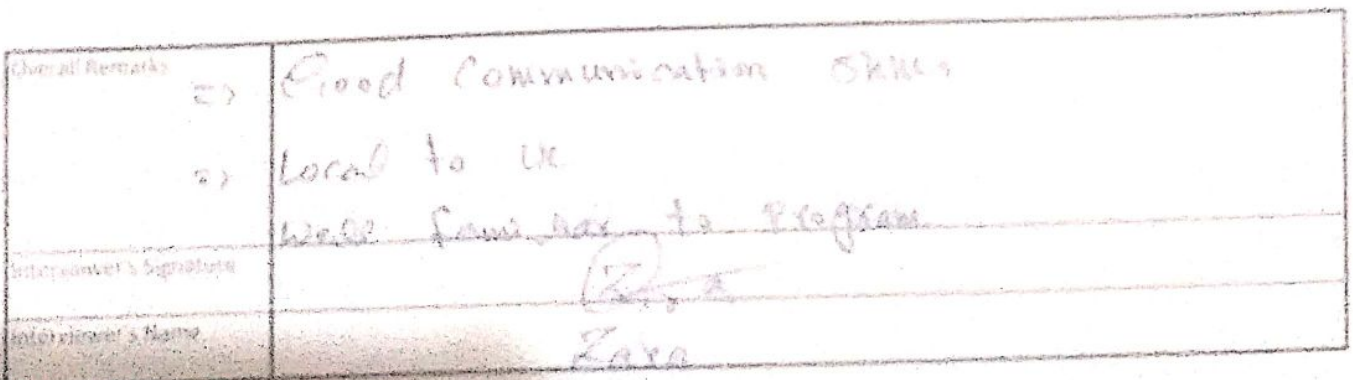 Overall Remarks
=> Good Communication Skills
=> Local to UK
Well familiar to Program
Interviewer's Signature
Interviewer's Name
Zara